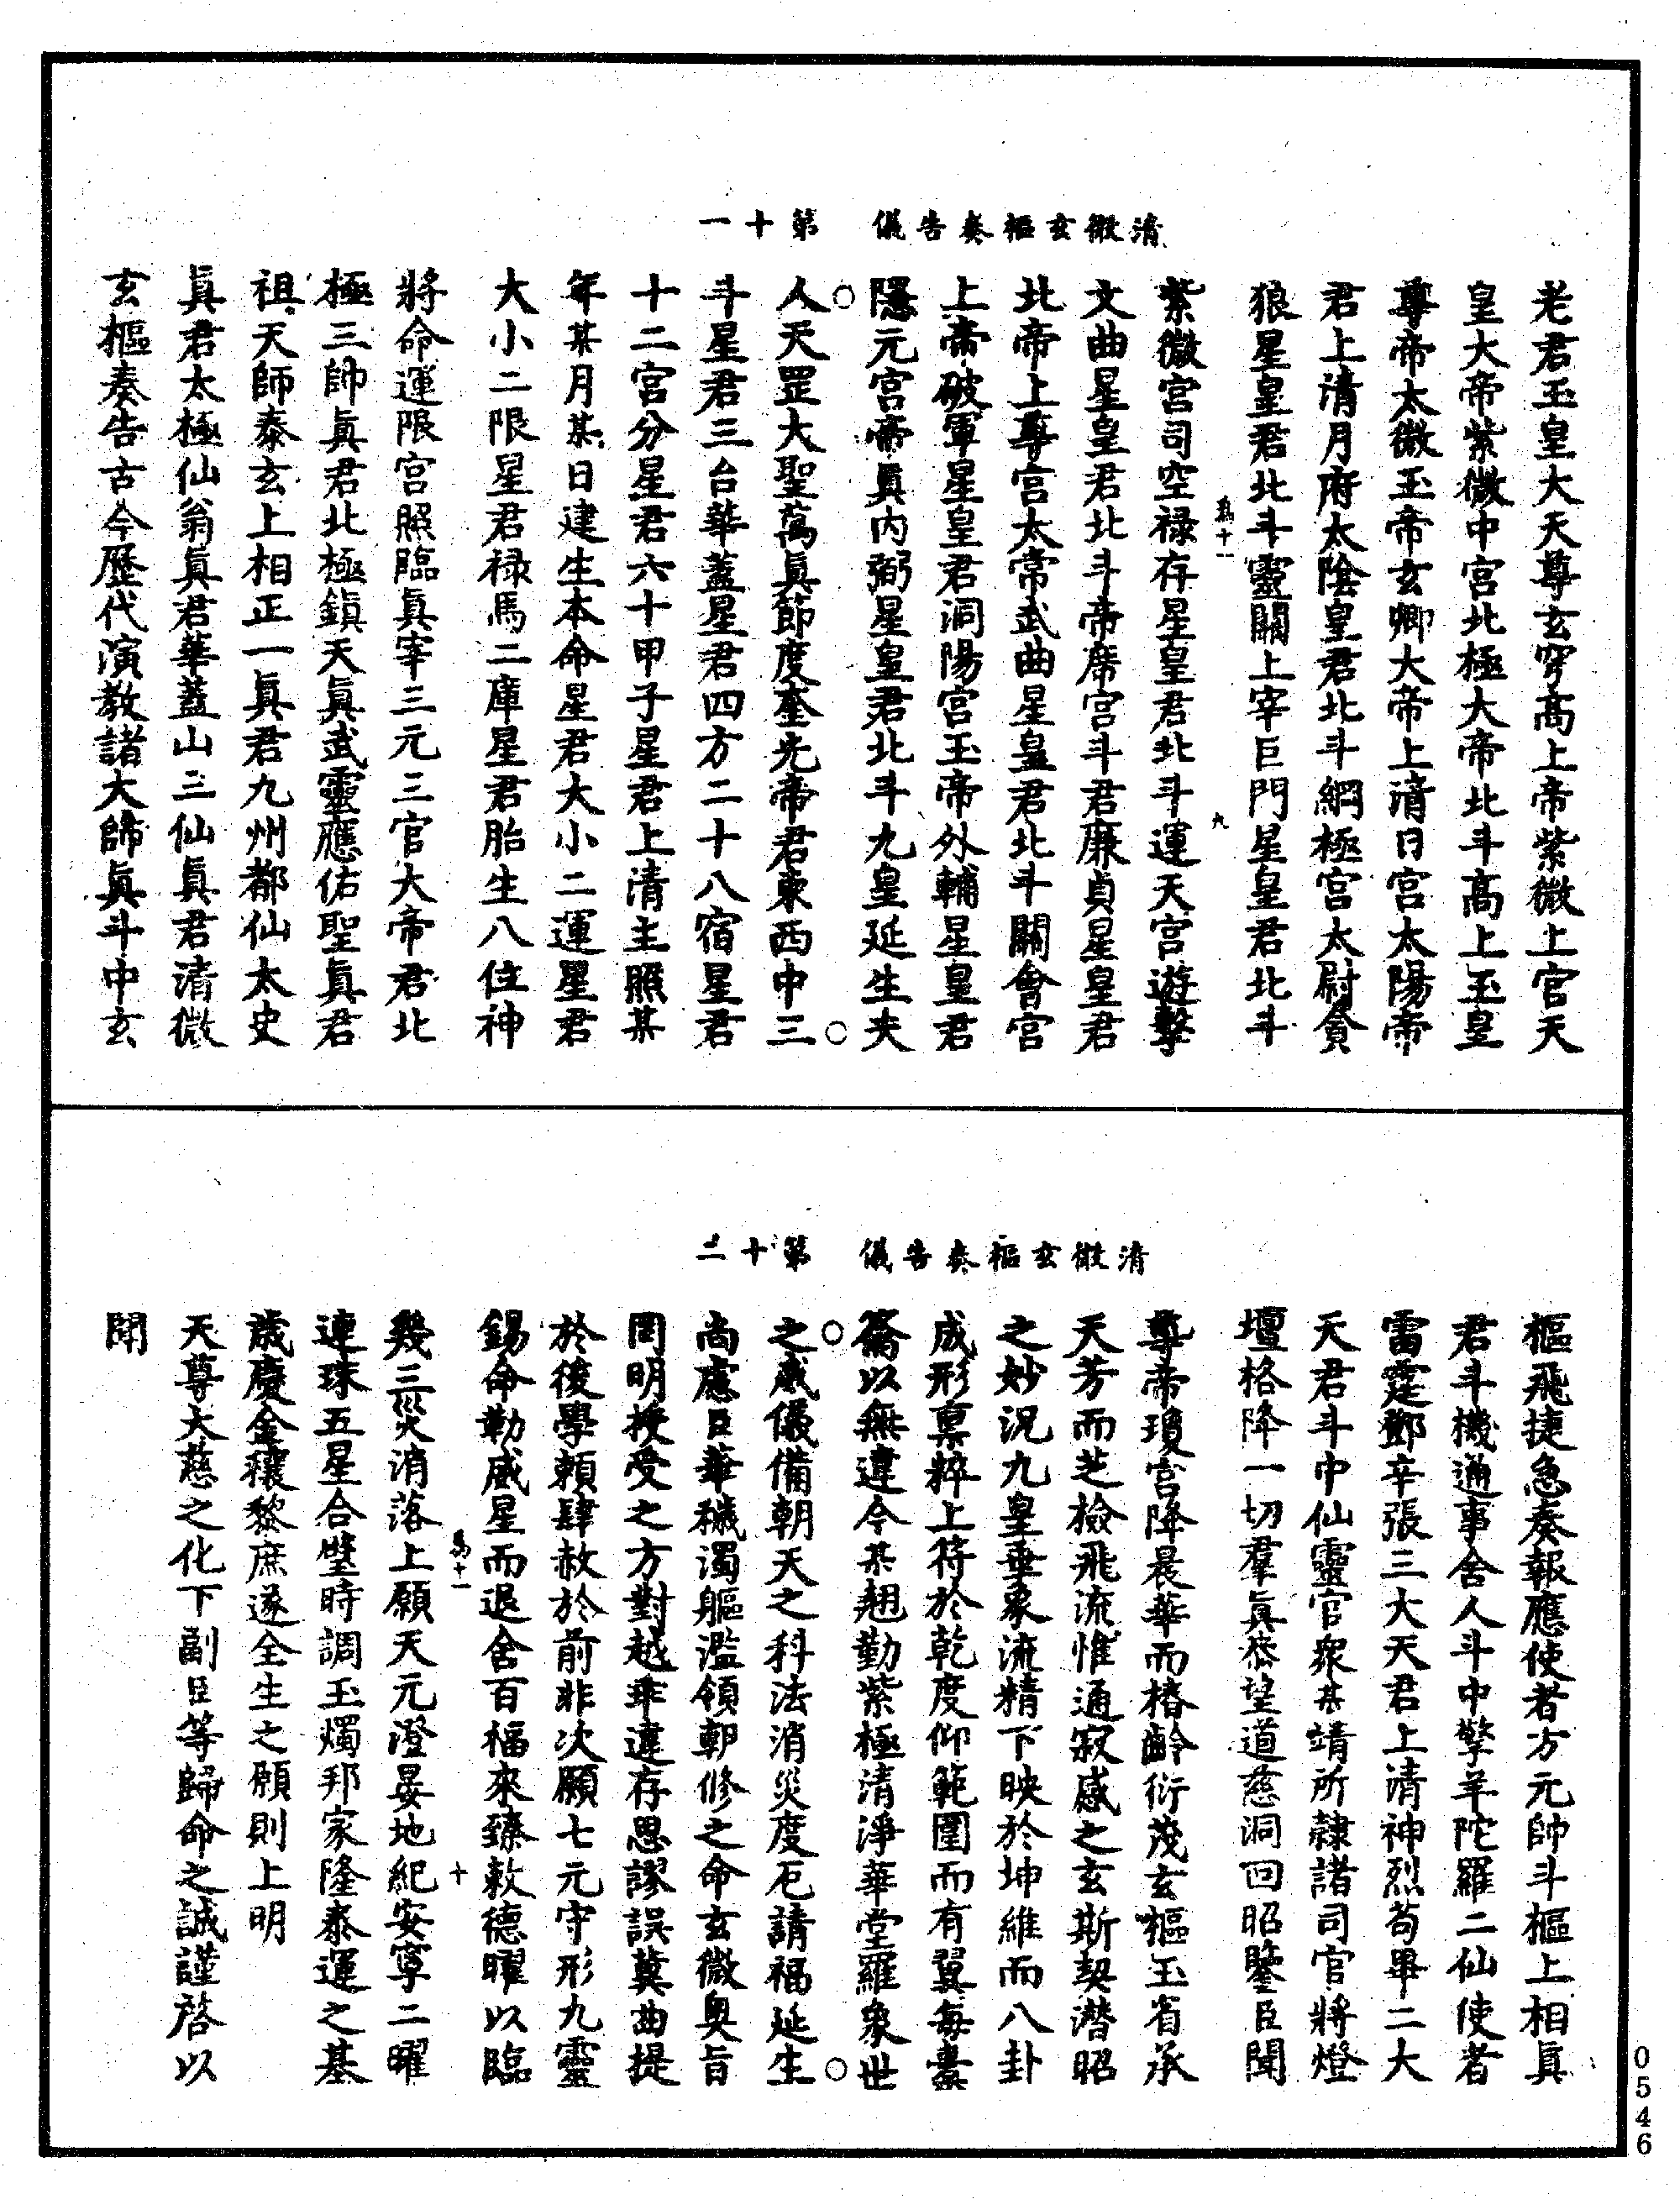 清微玄樞奏告儀　第十一
老君玉皇大天尊玄穹高上帝紫微上宮天
皇大帝紫微中宮北極大帝北斗高上玉皇
尊帝太微玉帝玄卿大帝上清日宮太陽帝
君上清月府太陰皇君北斗綱極宮太尉貪
狼星皇君北斗靈關上宰巨門星皇君北斗
爲十一　九
紫微宮司空祿存星皇君北斗運天宮遊擊
文曲星皇君北斗帝席宮斗君廉貞星皇君
北帝上尊宮太常武曲星皇君北斗關會宮
上帝破軍星皇君洞陽宮玉帝外輔星皇君
隱元宮帝眞內弼星皇君北斗九皇延生夫
人天罡大聖萬眞節度奎光帝君東西中三
斗星君三台華蓋星君四方二十八宿星君
十二宮分星君六十甲子星君上清主照某
年某月某日建生本命星君大小二運星君
大小二限星君祿馬二庫星君胎生八位神
將命運限宮照臨眞宰三元三官大帝君北
極三帥眞君北極鎮天眞武靈應佑聖眞君
祖天師泰玄上相正一眞君九州都仙太史
眞君太極仙翁眞君華蓋山三仙眞君清微
玄樞奏告古今歷代演教諸大師眞斗中玄
清微玄樞奏告儀　第十二
樞飛捷急奏報應使者方元帥斗樞上相眞
君斗機通事舍人斗中擎羊陀羅二仙使者
雷霆鄧辛張三大天君上清神烈苟畢二大
天君斗中仙靈官衆某靖所隸諸司官將燈
壇格降一切羣眞恭望道慈洞回昭鑒臣聞
尊帝瓊宮降晨華而椿齡衍茂玄樞玉省承
天芳而芝檢飛流惟通寂感之玄斯契潛昭
之妙況九皇垂象流精下映於坤維而八卦
成形稟粹上符於乾度仰範圍而有翼每橐
籥以無違今某翹勤紫極清淨華堂羅象世
之威儀備朝天之科法消災度厄請福延生
尚慮臣華穢濁軀濫領朝修之命玄微奧旨
罔明授受之方對越乖違存思謬誤冀曲提
於後學賴肆赦於前非次願七元守形九靈
錫命勒威星而退舍百福來臻敕德曜以臨
爲十一　十
幾三災消落上願天元澄晏地紀安寧二曜
連珠五星合璧時調玉燭邦家隆泰運之基
歲慶金穰黎庶遂全生之願則上明
天尊大慈之化下副臣等歸命之誠謹啓以
聞
0546